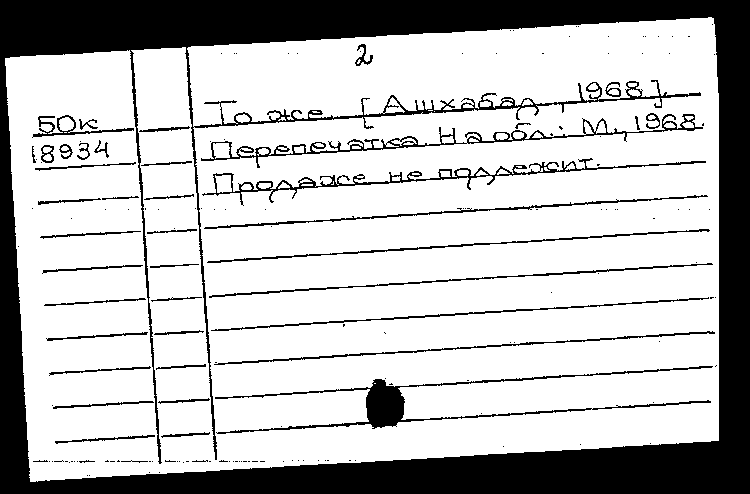 2
50к То же [Ашхабад, 1968].
18934 Перепечатка. На обл.: М., 1968.
Продаже не подлежит.